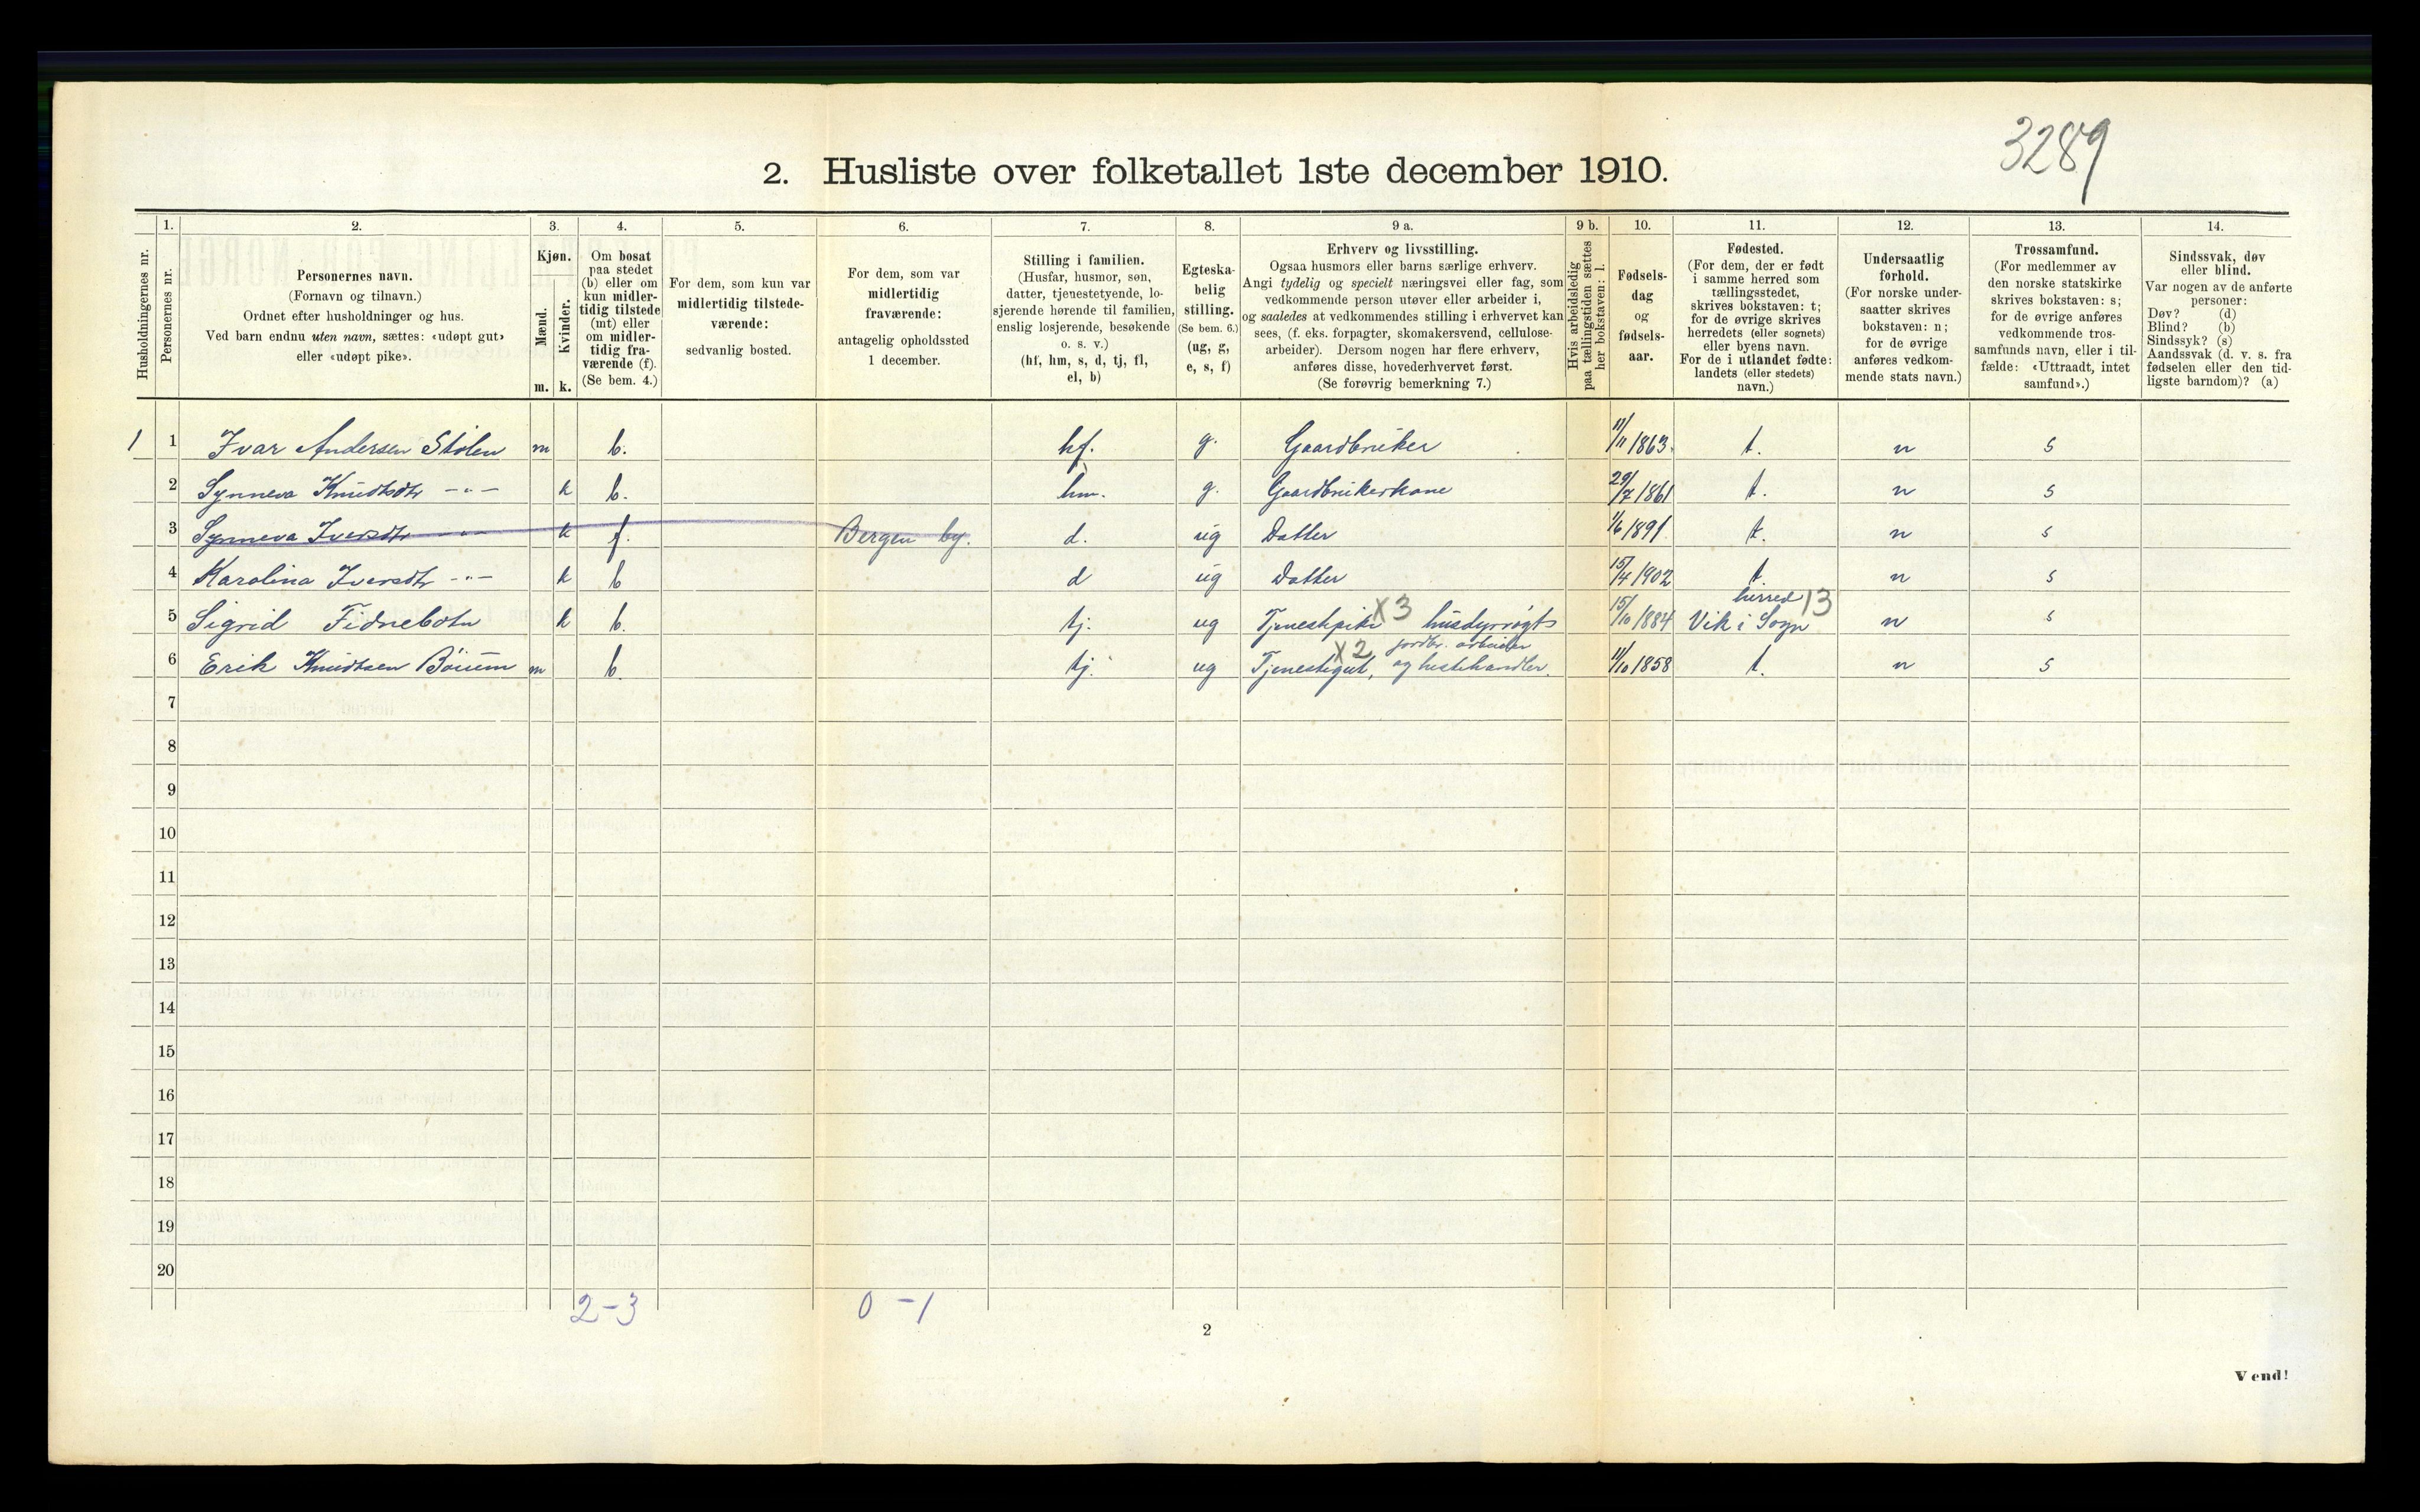 3289
2. Husliste over folketallet 1ste december 1910.
1. 2. 3. 4. 5. 6. 7. 8. 9 a. 9 b. 10. 11. 12. 13. 14.
Husholdningernes nr.
Personernes nr.
Personernes navn.
(Fornavn og tilnavn.)
Ordnet efter husholdninger og hus.
Ved barn endnu uten navn, sættes: «udøpt gut»
eller «udøpt pike».
Kjøn.
Mænd.
Kvinder.
m. k.
Om bosat
paa stedet
(b) eller om
kun midler-
tidig tilstede
(mt) eller
om midler-
tidig fra-
værende (f).
(Se bem. 4.)
For dem, som kun var
midlertidig tilstede-
værende:
sedvanlig bosted.
For dem, som var
midlertidig
fraværende:
antagelig opholdssted
1 december.
Stilling i familien.
(Husfar, husmor, søn,
datter, tjenestetyende, lo-
sjerende hørende til familien,
enslig losjerende, besøkende
o. s. v.)
(hf, hm, s, d, tj, fl,
el, b)
Egteska-
belig
stilling.
(Se bem. 6.)
(ug, g,
e, s, f)
Erhverv og livsstilling.
Ogsaa husmors eller barns særlige erhverv.
Angi tydelig og specielt næringsvei eller fag, som
vedkommende person utøver eller arbeider i,
og saaledes at vedkommendes stilling i erhvervet kan
sees, (f. eks. forpagter, skomakersvend, cellulose-
arbeider). Dersom nogen har flere erhverv,
anføres disse, hovederhvervet først.
(Se forøvrig bemerkning 7.)
Hvis arbeidsledig
paa tællingstiden sættes
her bokstaven: l.
Fødsels-
dag
og
fødsels-
aar.
Fødested.
(For dem, der er født
i samme herred som
tællingsstedet,
skrives bokstaven: t;
for de øvrige skrives
herredets (eller sognets)
eller byens navn.
For de i utlandet fødte:
landets (eller stedets)
navn.)
Undersaatlig
forhold.
(For norske under-
saatter skrives
bokstaven: n;
for de øvrige
anføres vedkom-
mende stats navn.)
Trossamfund.
(For medlemmer av
den norske statskirke
skrives bokstaven: s;
for de øvrige anføres
vedkommende tros-
samfunds navn, eller i til-
fælde: «Uttraadt, intet
samfund».)
Sindssvak, døv
eller blind.
Var nogen av de anførte
personer:
Døv? (d)
Blind? (b)
Sindssyk? (s)
Aandssvak (d. v. s. fra
fødselen eller den tid-
ligste barndom)? (a)
1 1 Ivar Andersen Stølen m b. hf. g. Gaardbruker 11/11 1863. t. n s
2 Synneva Knudtsdtr -"- k b. hm. g. Gaardbrukerkone 29/7 1861 t. n s
3 Synneva Iversdtr -"- k f. Bergen by. d. ug Datter 1/6 1891 t. n s
4 Karolina Iversdtr -"- k b d ug Datter 15/4 1902 t. n s
herred 13
5 Sigrid Fidnebotn k b. tj. ug Tjenestpike X3 husdyrrøgt 15/10 1884 Vik i Sogn n s
X2 jordbr. arbeider
6 Erik Knudtsen Böium m b. tj. ug Tjenestegut, og hestehandler. 11/10 1858 t. n s
7
8
9
10
11
12
13
14
15
16
17
18
19
20
2-3 0-1
2
Vend!